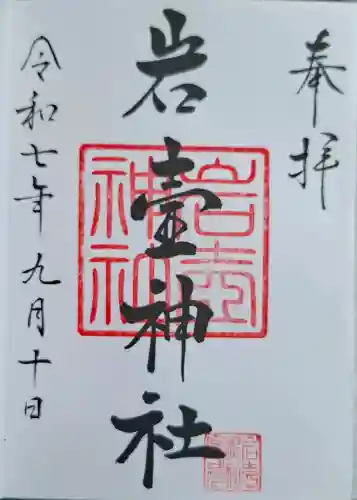 奉拝
岩壷神社
岩壷神社
令和七年九月十日